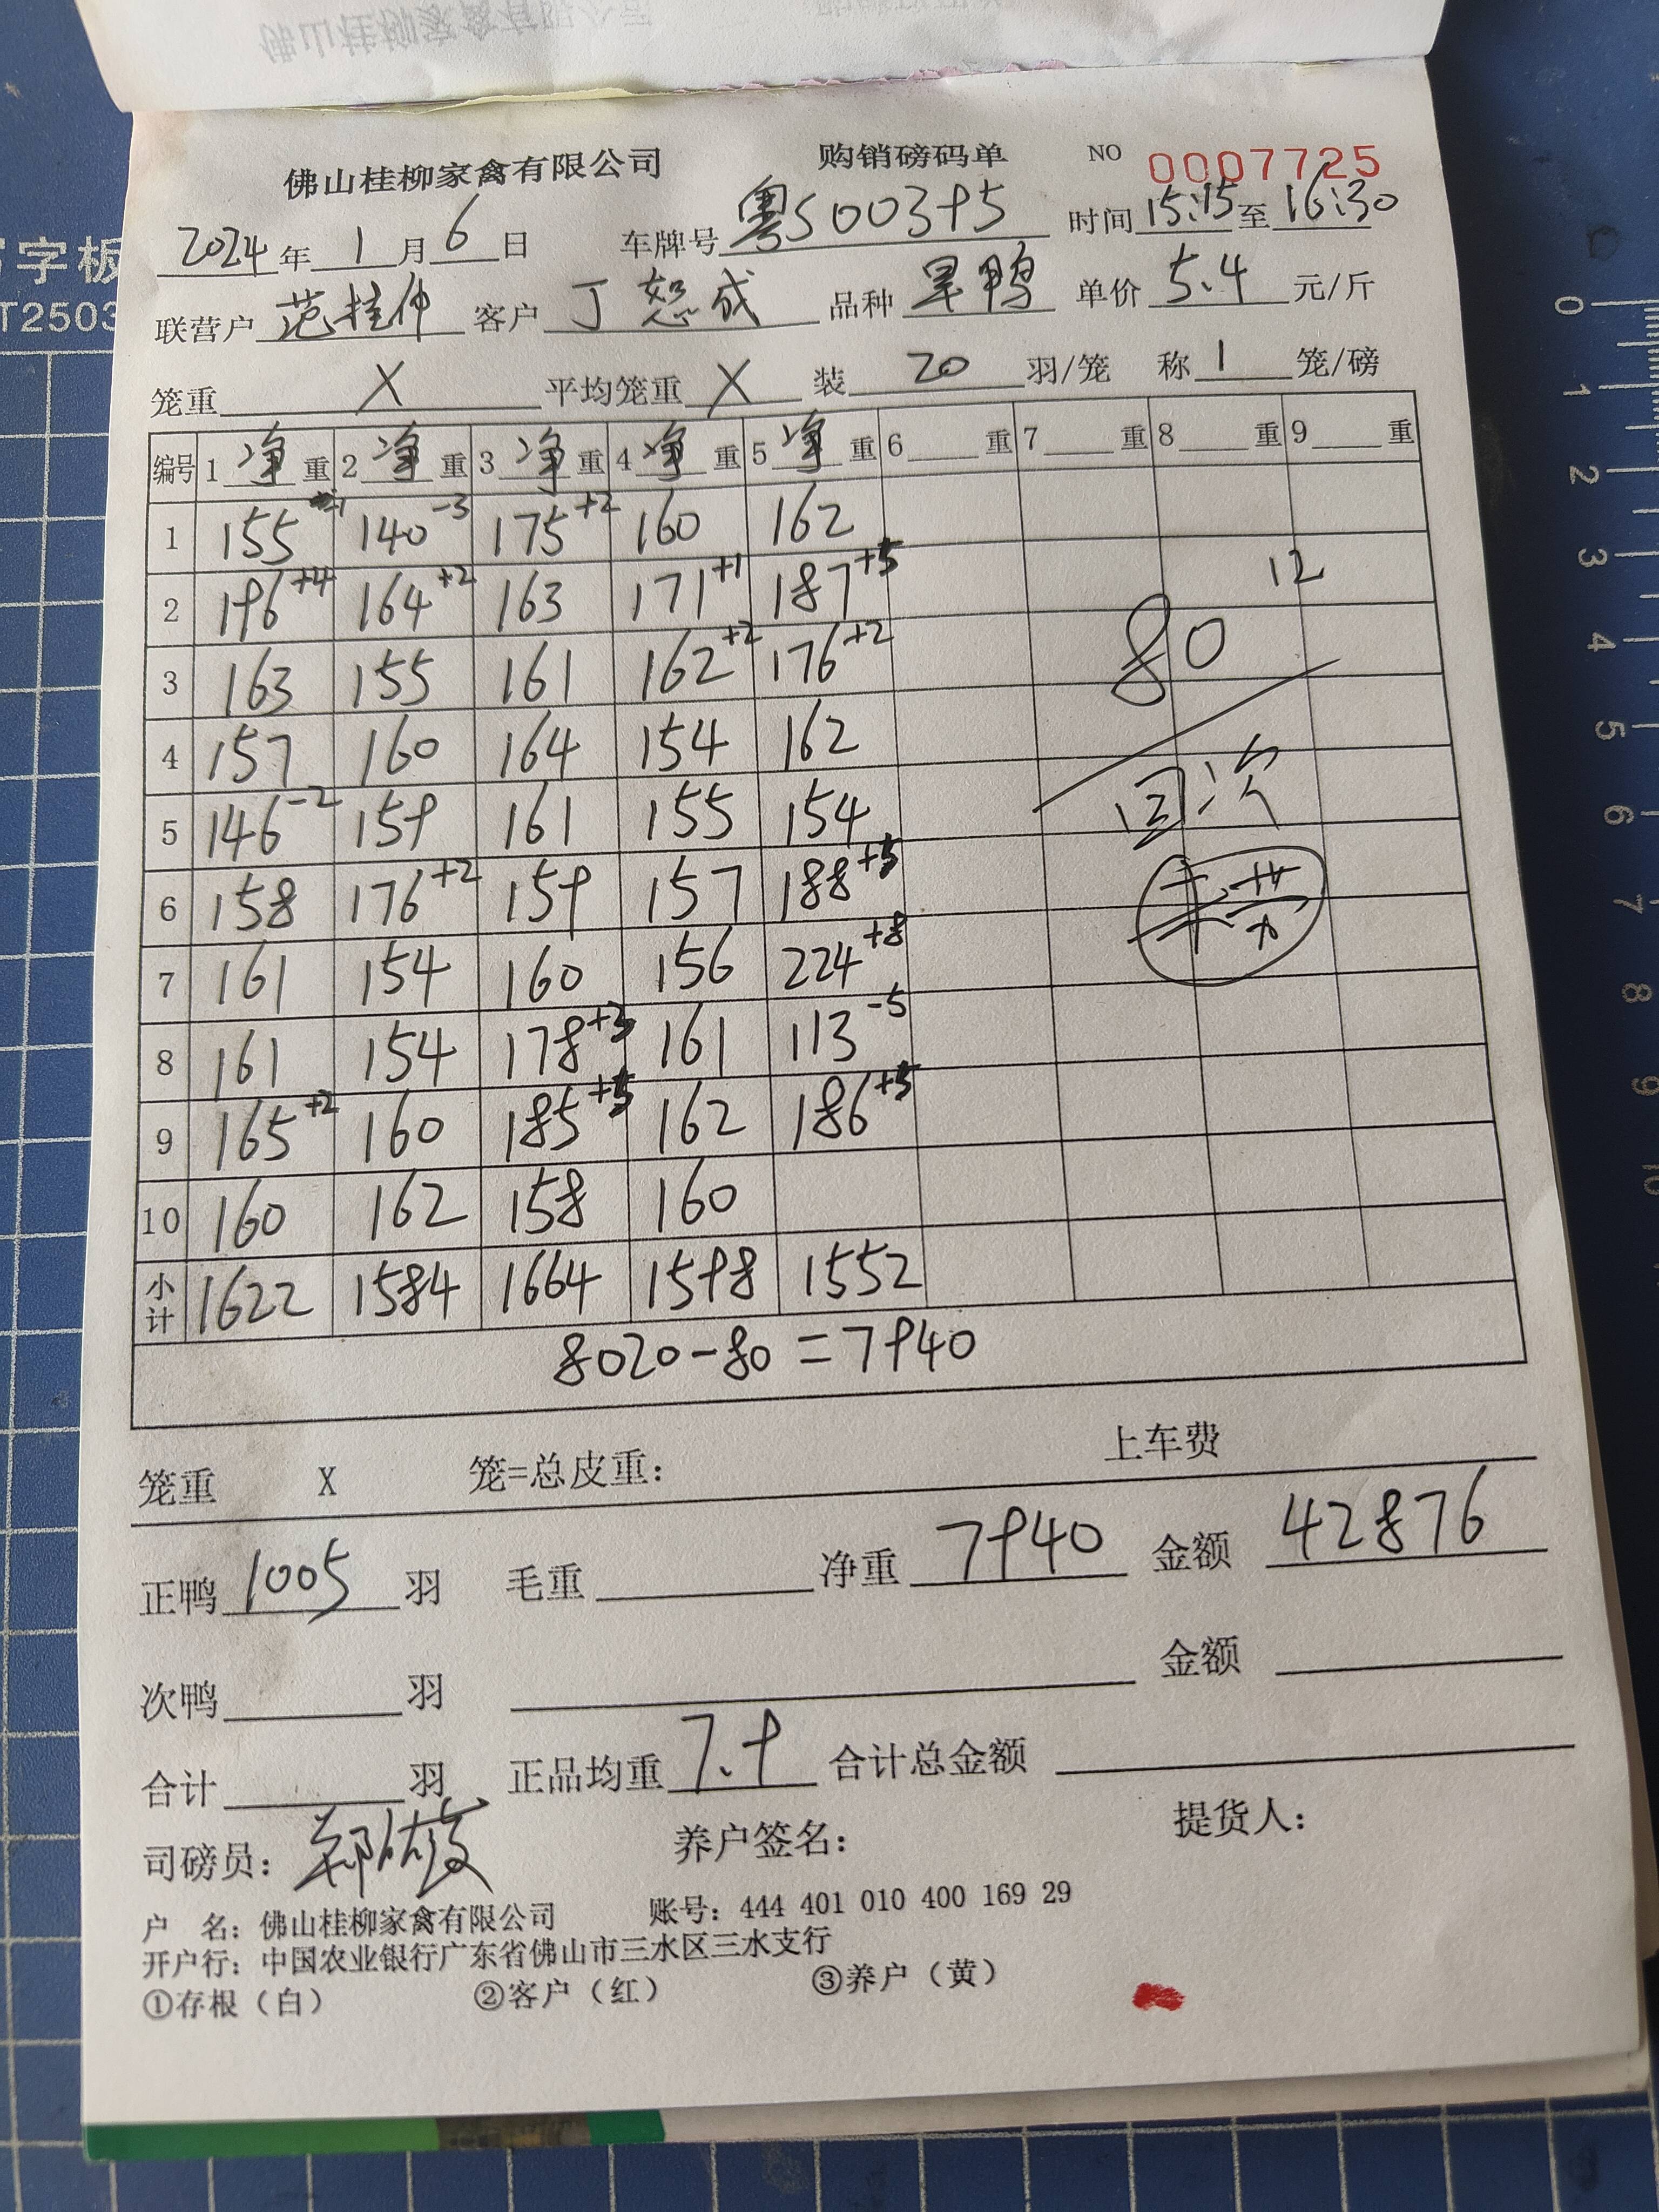 佛山桂柳家禽有限公司 购销磅码单 NO 0007725
2024年1月6日 车牌号粤S00395 时间15:15至16:30
联营户范桂仲 客户丁恕成 品种旱鸭 单价5.4元/斤
笼重X 平均笼重X 装20羽/笼 称1笼/磅
编号 1净重 2净重 3净重 4净重 5净重 6重 7重 8重 9重
1 155 140-3 175+2 160 162
2 196+4 164+2 163 171+1 187+5 12
3 163 155 161 162+2 176+2 80
4 157 160 164 154 162
5 146-2 159 161 155 154 回次
6 158 176+2 159 157 188+5
7 161 154 160 156 224+8
8 161 154 178+3 161 113-5
9 165+2 160 185+5 162 186+5
10 160 162 158 160
小计 1622 1584 1664 1598 1552
8020-80=7940
笼重 X 笼=总皮重: 上车费
正鸭1005羽 毛重 净重7940 金额42876
次鸭 羽 金额
合计 羽 正品均重7.9 合计总金额
司磅员: 养户签名: 提货人:
户 名: 佛山桂柳家禽有限公司 账号: 444 401 010 400 169 29
开户行: 中国农业银行广东省佛山市三水区三水支行
①存根(白) ②客户(红) ③养户(黄)